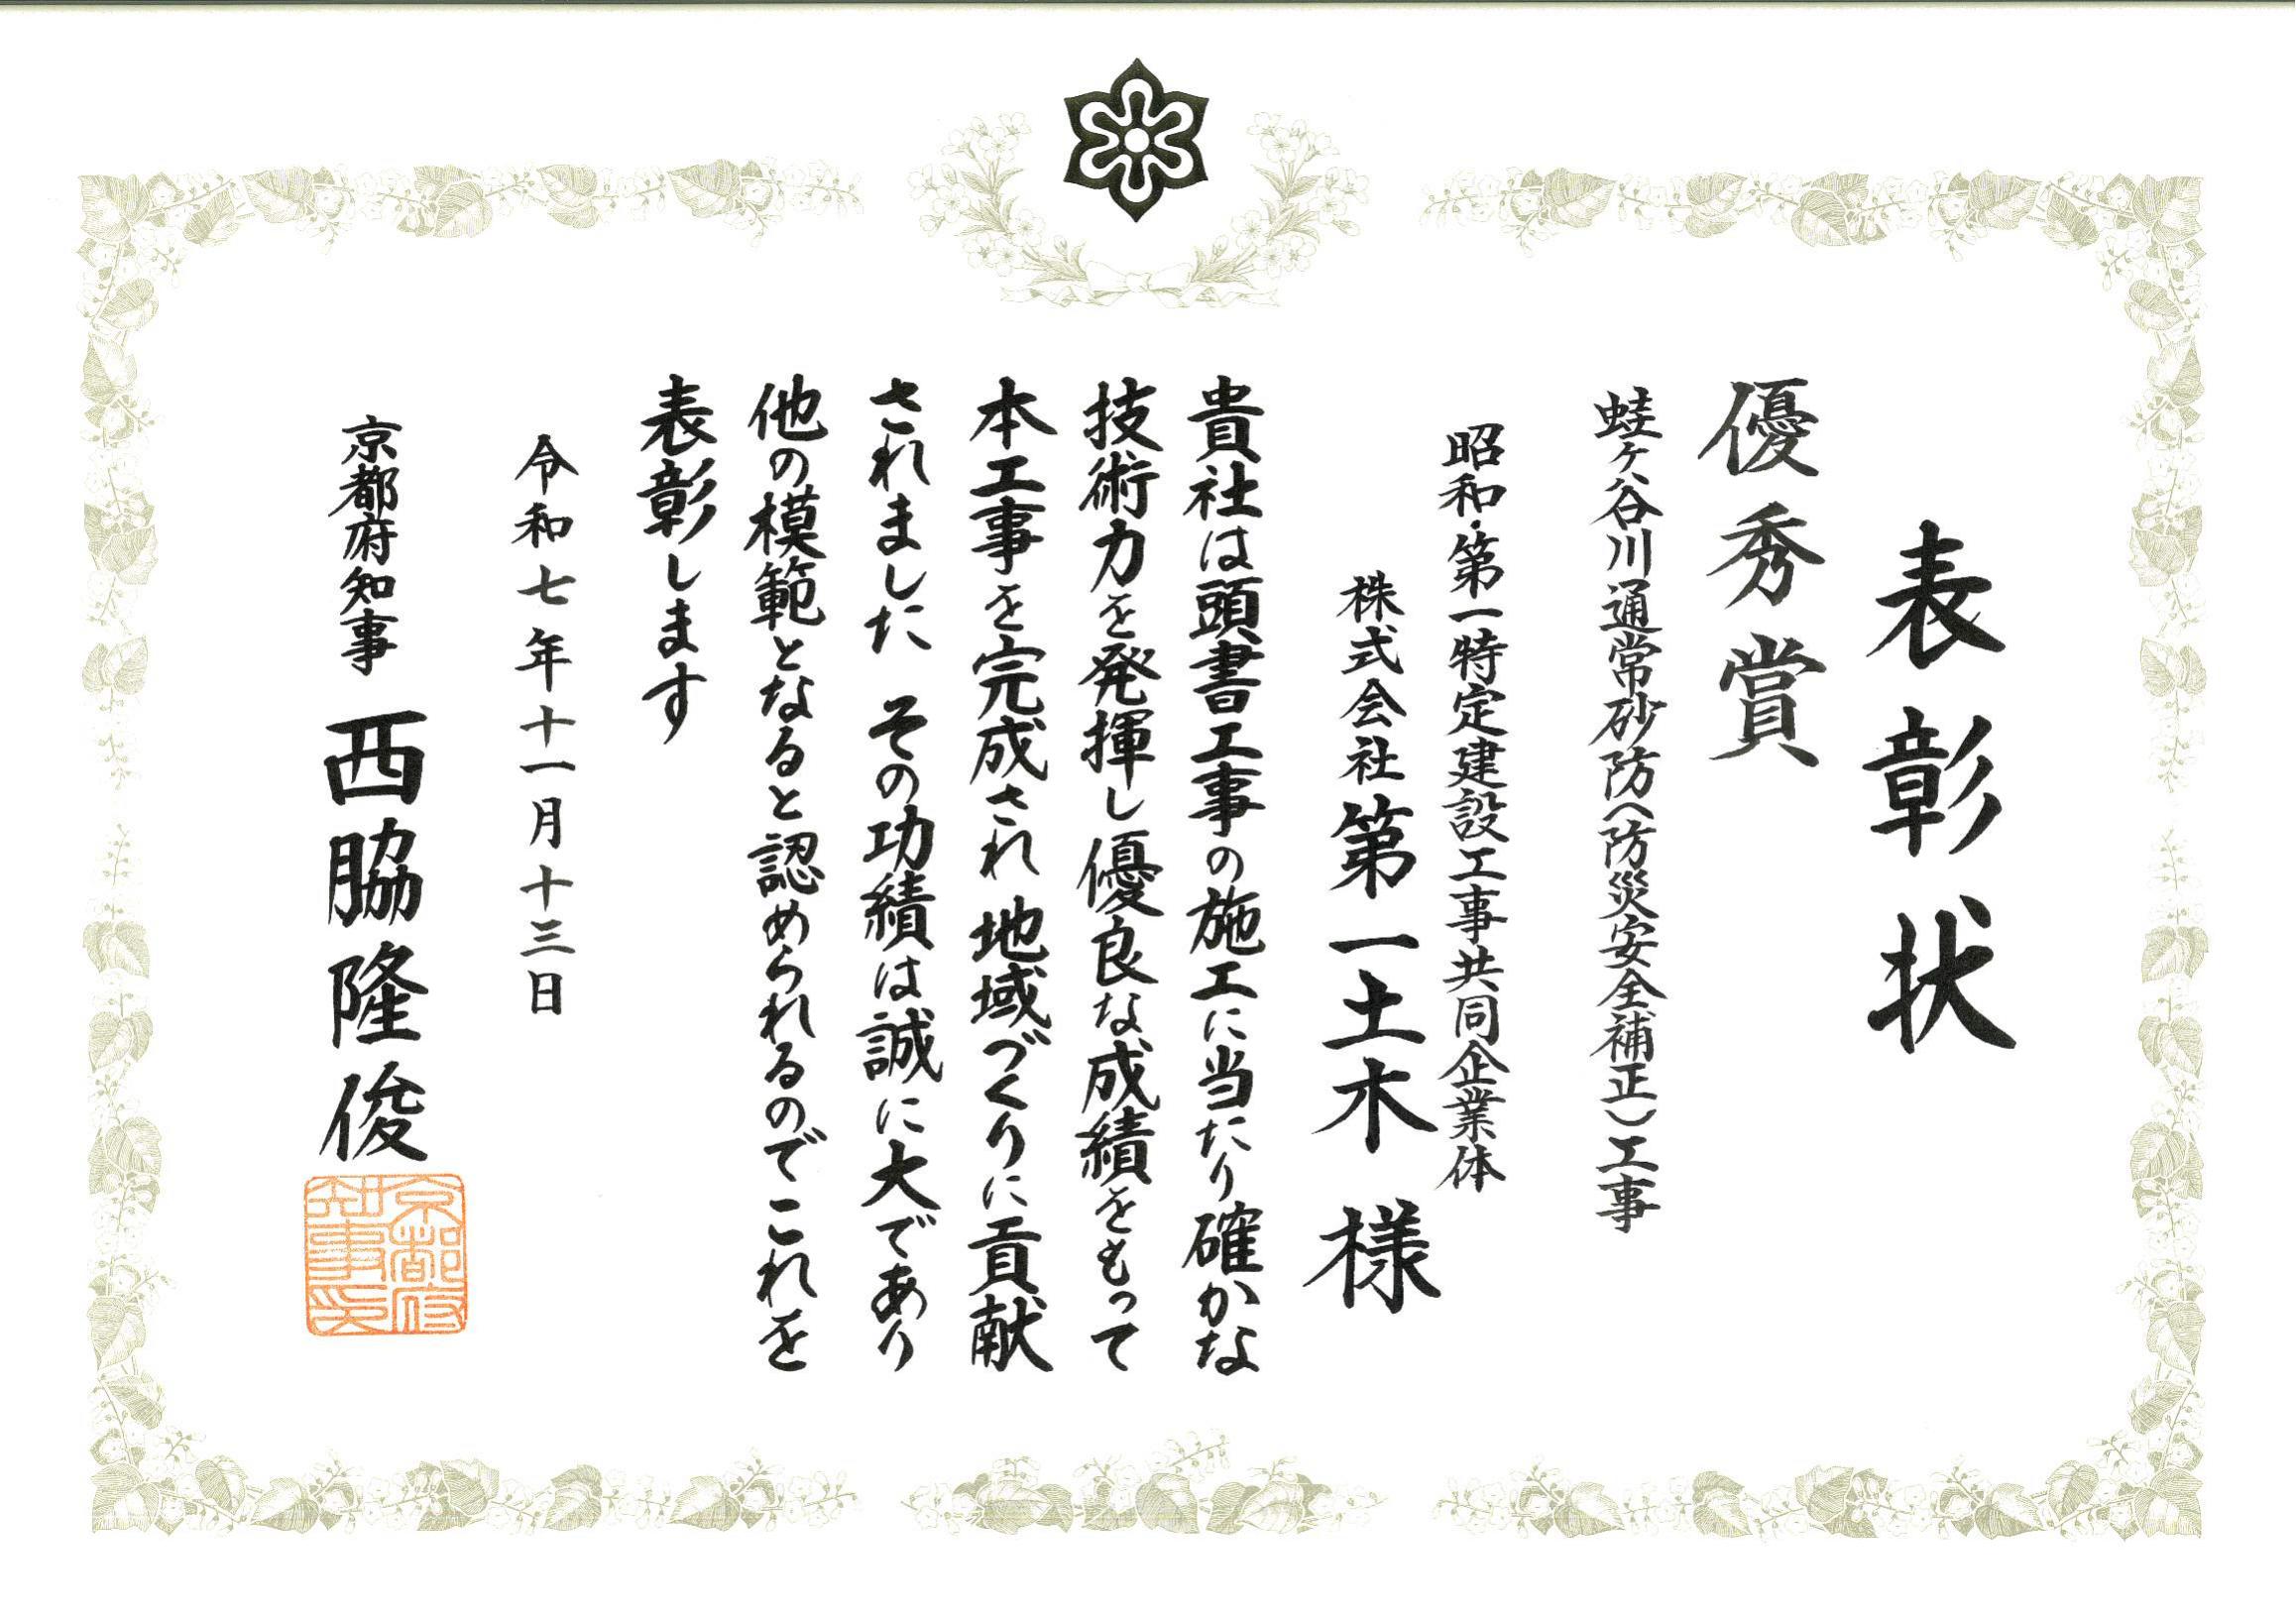 表彰状
優秀賞
蛙ヶ谷川通常砂防(防災安全補正)工事
昭和・第一特定建設工事共同企業体
株式会社 第一土木 様
貴社は頭書工事の施工に当たり確かな
技術力を発揮し優良な成績をもって
本工事を完成され 地域づくりに貢献
されました その功績は誠に大であり
他の模範となると認められるのでこれを
表彰します
令和七年十一月十三日
京都府知事 西脇隆俊
京都府
知事印